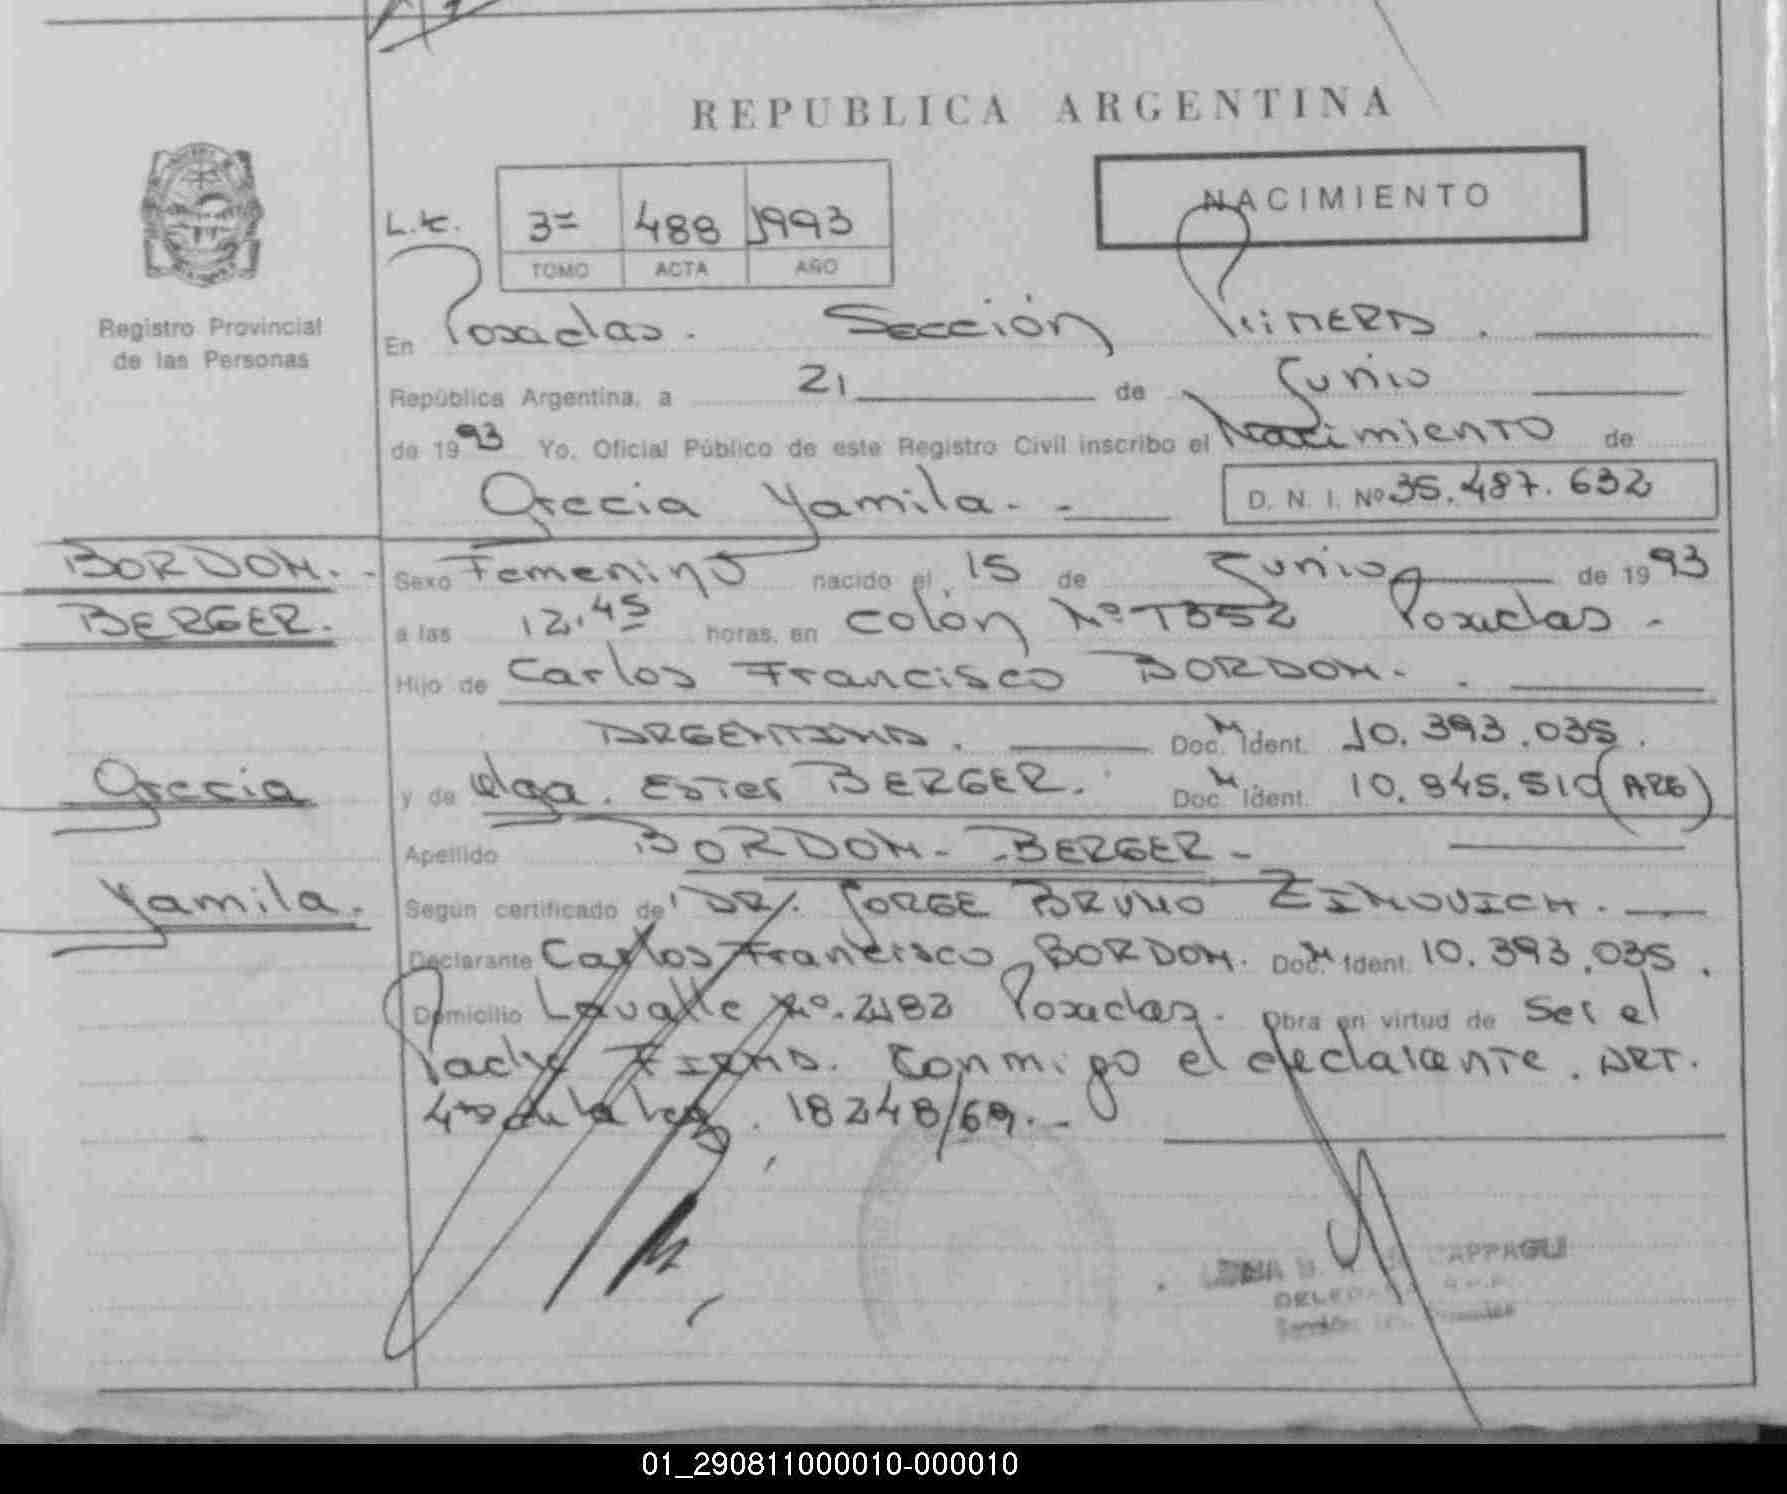 REPUBLICA ARGENTINA
NACIMIENTO
L.C. 3= 488 1993
TOMO ACTA AÑO
Registro Provincial
de las Personas
En Posadas. Sección Primera.
República Argentina, a 21 de Junio
de 1993 Yo, Oficial Público de este Registro Civil inscribo el Nacimiento de
Grecia Yamila.- - D. N. I. Nº 35.487.632
BORDON.-
BERGER.
Sexo Femenino nacido el 15 de Junio de 1993
a las 12,45 horas, en Colón Nº 1352 Posadas.-
Hijo de Carlos Francisco BORDON.
ARGENTINA. Doc. Ident. 10.393.035.
Grecia
y de Olga Ester BERGER. Doc. Ident. 10.945.510 (ARG)
Apellido BORDON- BERGER-
Yamila.
Según certificado de DR. JORGE BRUNO ZINOVICH.
Declarante Carlos Francisco BORDON. Doc. Ident. 10.393.035.
Domicilio Lavalle Nº 2182 Posadas. Obra en virtud de Ser el
Padre Firma Conmigo el declarante. ART.
4to de la Ley. 18248/69.-
DELEGADA
01_290811000010-000010